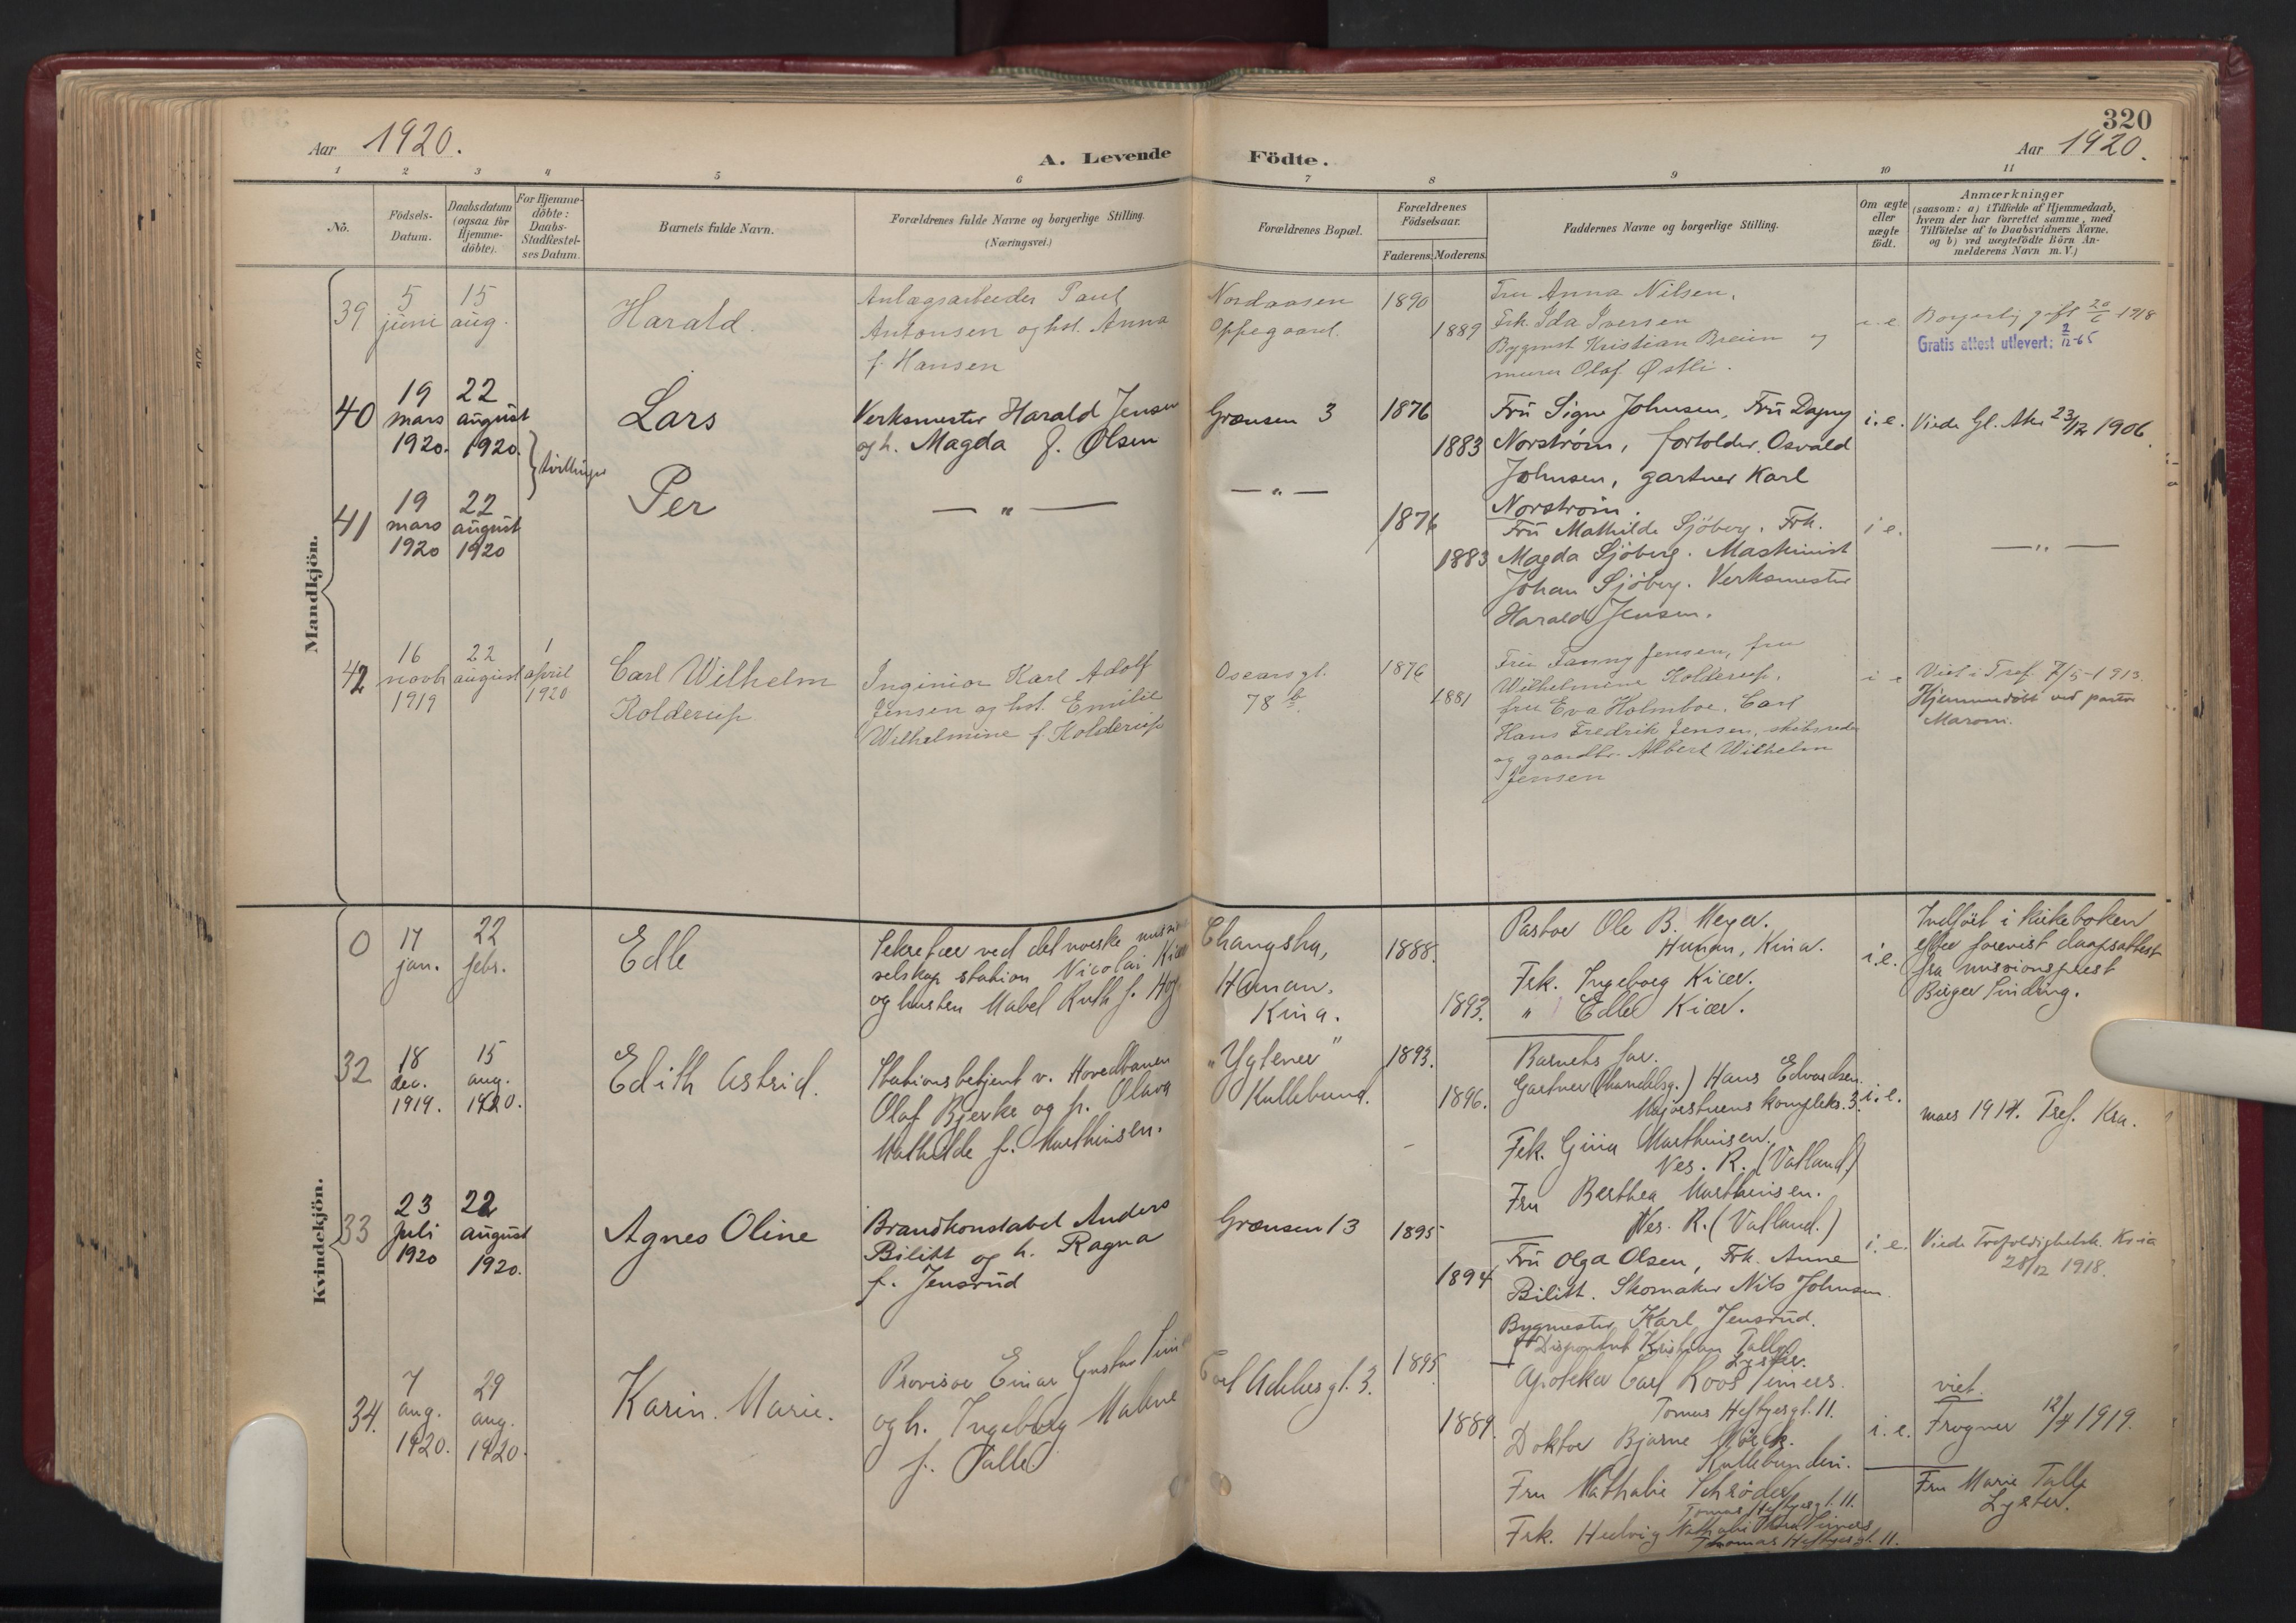 320
Aar 1920.
A. Levende Födte.
Aar 1920.
1 2 3 4 5 6 7 8 9 10 11
Nö.
Födsels-Datum.
Daabsdatum (ogsaa for Hjemmedöbte).
For Hjemmedöbte: Daabs-Stadfæstelses Datum.
Barnets fulde Navn.
Forældrenes fulde Navne og borgerlige Stilling.
(Næringsvei.)
Forældrenes Bopæl.
Forældrenes Födselsaar.
Faderens. Moderens.
Faddernes Navne og borgerlige Stilling.
Om ægte eller uægte födt.
Anmærkninger
(saasom: a) i Tilfælde af Hjemmedaab, hvem der har forrettet samme, med Tilföielse af to Daabsvidners Navne. og b) ved uægtefödte Börn Anmelderens Navn m. V.)
Mandkjön.
39
5 juni
15 aug.
Harald.
Anlægsarbeider Paul
Antonsen og hst. Anna
f. Hansen
Nordaasen
Oppegaard.
1890
1889
Fru Anna Nilsen.
Frk. Ida Iversen
Bygmst. Kristian Breien og
murer Olaf Østli.
i. e.
Borgerlig gift 20/6 1918
Gratis attest utlevert: 2/12-65
40
19 mars 1920.
22 august 1920.
tvillinger
Lars
Verksmester Harald Jensen
og h. Magda f. Olsen
Grænsen 3
1876
1883
Fru Signe Johnsen, Fru Dagny
Norstrøm, fortolder Osvald
Johnsen, gartner Karl
Norstrøm.
i. e.
Viede Gl. Aker 23/12 1906.
41
19 mars 1920
22 august 1920
Per
— " —
— " —
1876
1883
Fru Mathilde Sjöberg. Frk.
Magda Sjöberg. Maskinist
Johan Sjöberg. Verksmester
Harald Jensen.
i e.
— " —
42
16 novb 1919
22 august
1 april 1920
Carl Wilhelm
Kolderup
Inginiør Karl Adolf
Jensen og hst. Emilie
Wilhelmine f. Kolderup
Oscarsgt.
78 b.
1876
1881
Fru Fanny Jensen, fru
Wilhelmine Kolderup,
fru Eva Holmboe. Carl
Hans Fredrik Jensen, skibsreder
og gaardbr. Albert Wilhelm
Jensen
i e
Viet i Tref. 7/5-1913.
Hjemmedöbt ved pastor
Maroni.
Kvindekjön.
0
17 jan.
22 febr.
Edle
Sekretær ved det norske
selskap station Nicolai Kiær
og hustru Mabel Ruth f.
Changsha,
Hunan,
Kina.
1888.
1893.
Pastor Ole B. Meyer.
Hunan, Kina.
Frk. Ingeborg Kiær.
" Edle Kiær.
i. e.
Indført i kirkeboken
efter forevist daapsattest
fra missionsprest
Birger Sinding.
32
18 dec. 1919.
15 aug. 1920.
Edith Astrid.
Stationsbetjent v. Hovedbanen
Olaf Bjerke og h. Olava
Mathilde f. Marthinsen.
Kullebund.
1893.
1896.
Barnets far.
Gartner (handelsg.) Hans Edvardsen.
Majorstuens kompleks. 3.
Frk. Gina Marthinsen.
Nes. R. (Vatland.)
Fru Berthea Marthinsen.
Nes. R. (Vatland.)
i. e.
mars 1914. Tref. Kra.
33
23 Juli 1920
22 august 1920.
Agnes Oline
Brandkonstabel Anders
Bilitt og h. Ragna
f. Jensrud
Grænsen 13
1895
1894
Fru Olga Olsen, Frk. Anne
Bilitt. Skomaker Nils Johnsen.
Bygmester Karl Jensrud.
i. e.
Viede Trefoldighetsk. Kr-ia
28/12 1918.
34.
7 aug. 1920.
29 aug. 1920.
Karin Marie.
Provisor Einar Gustav
og h. Ingeborg Malene
f. Talle
Carl Adlersgt. 3.
1895
1889.
Disponent Kristian Talle
Lyster.
Apoteker Carl Roos
Tomas Heftyesgt. 11.
Doktor Bjarne
Kullebunden.
Fru Nathalie Schrøder
Tomas Heftyesgt. 11.
Frk. Hedvig
Thomas Heftyesgt. 11.
i. e.
viet.
Frogner 12/4 1919.
Fru Marie Talle
Lyster.